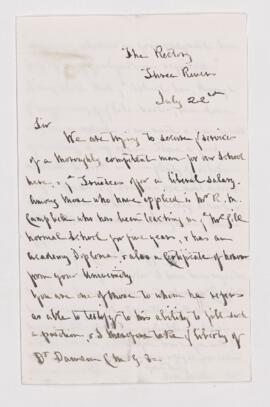 The Rectory
Three Rivers
July 22nd
Sir
We are trying to secure ye services
of a thoroughly competent man for our School
here, & ye Trustees offer a liberal salary.
Among those who have applied is Mr R. M.
Campbell who has been teaching in ye McGill
Normal School for five years, & has an
Academy Diploma & also a Certificate of honor
from your University
You are one of those to whom he refers
as able to testify to his ability to fill such
a position, & I
take ye liberty of
Dr Dawson C.M.G. &c